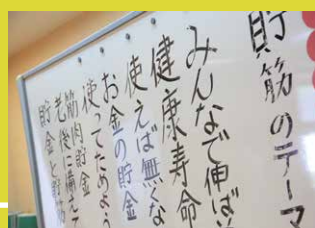 貯筋のテーマ
みんなで伸ばそ
健康寿命
使えば無くな
お金の貯金
使ってためよう
筋肉貯金
老後に備えて
貯金と貯筋